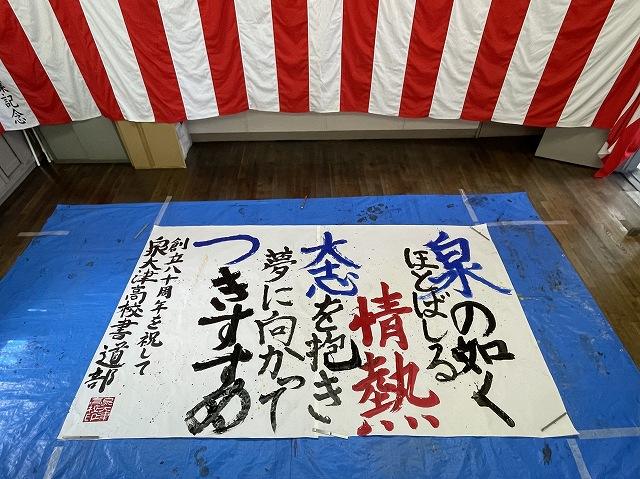 泉の如く
ほとばしる
情熱
大志を抱き
夢に向かって
つきすすめ
創立八十周年を祝して
泉大津高校書道部
記念